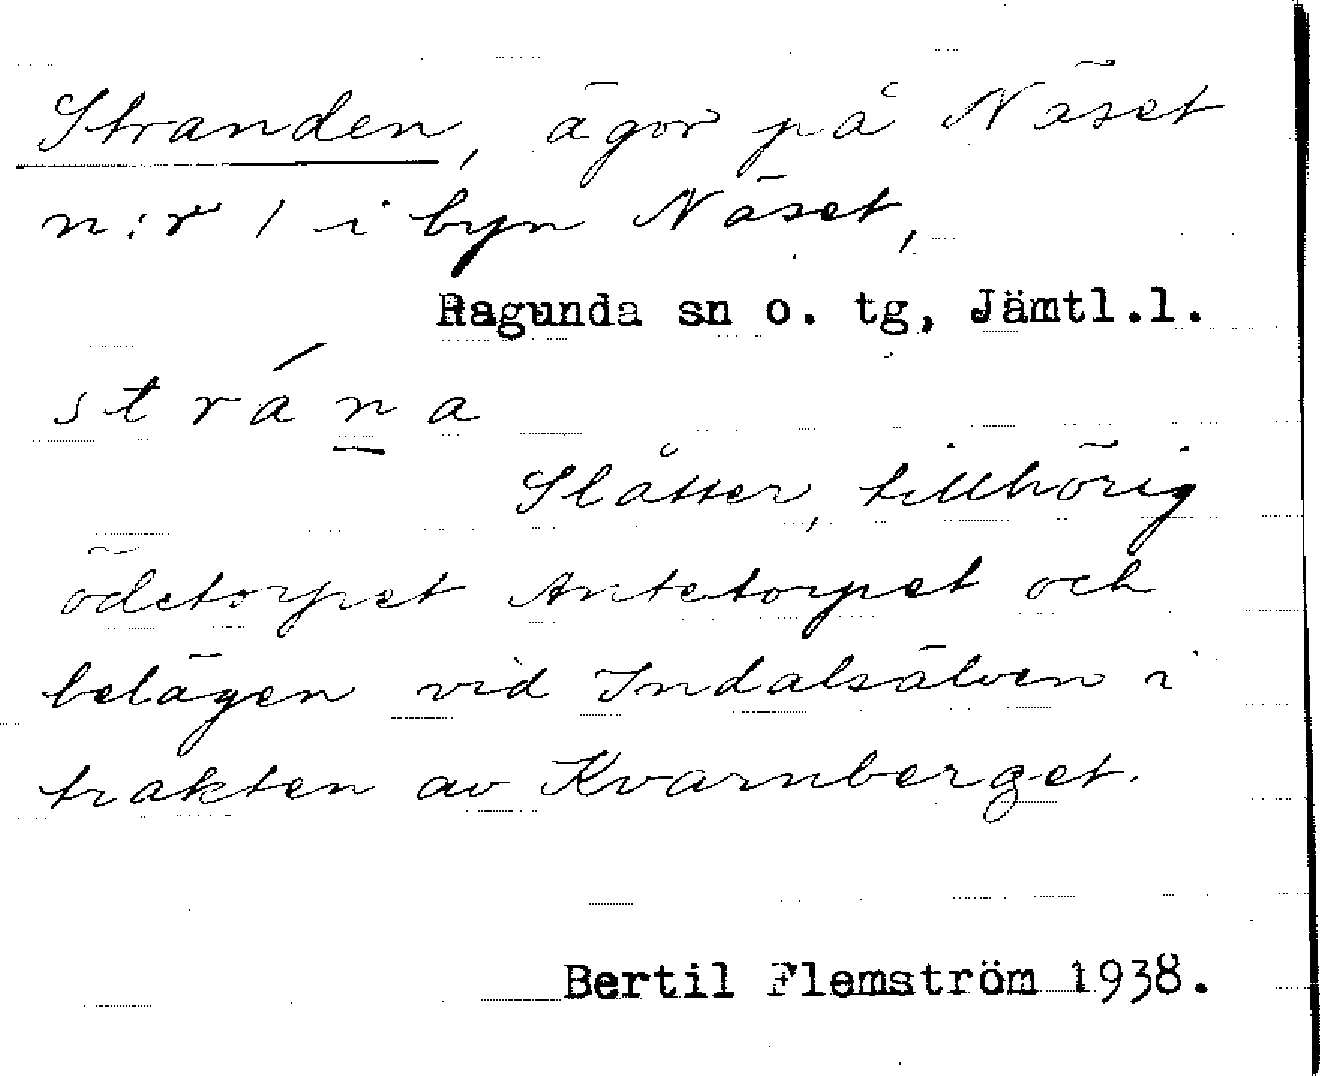 Stranden, ägor på Näset
n:r 1 i byn Näset,
Ragunda sn o. tg, Jämtl.l.
strá̄na
Slåtter, tillhörig
ödetorpet Antetorpet och
belägen vid Indalsälven i
trakten av Kvarnberget.
Bertil Flemström 1938.